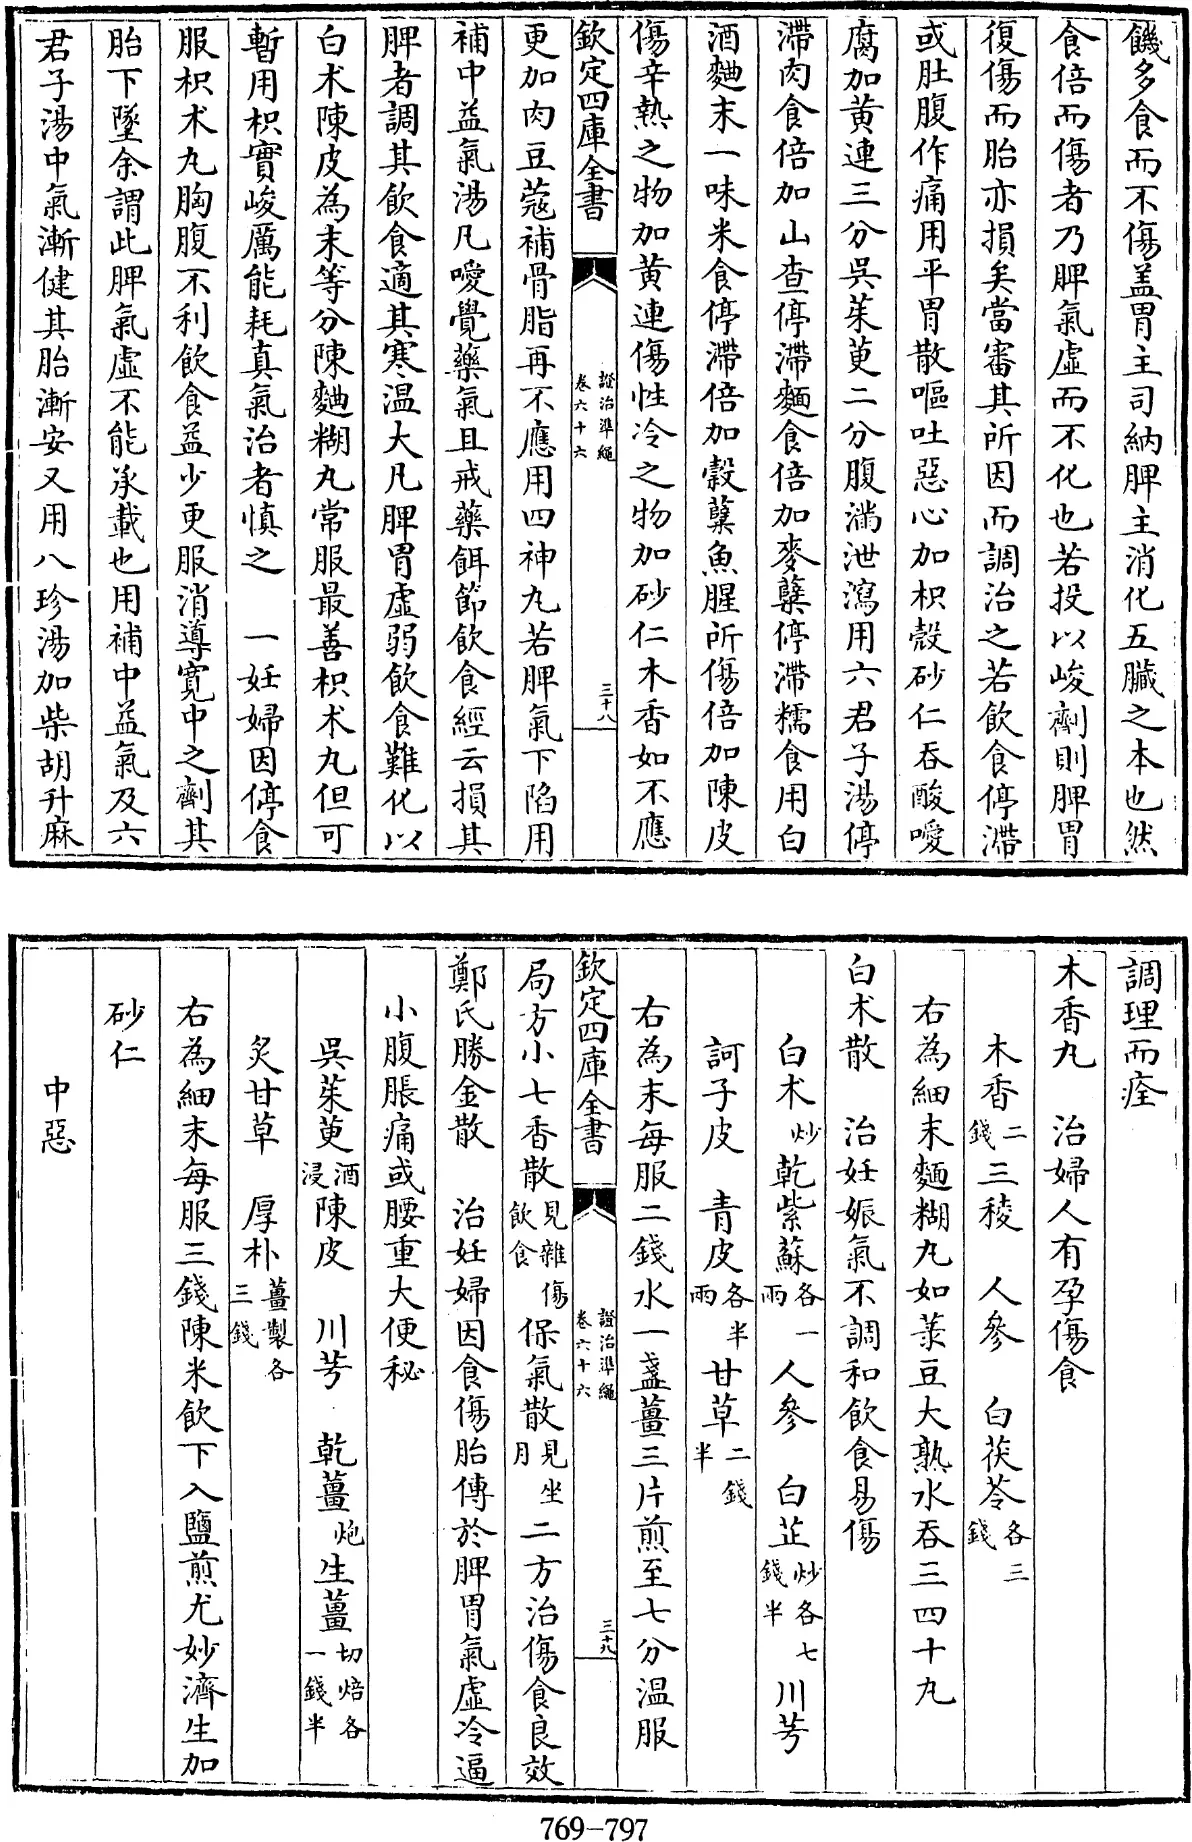 饑多食而不傷盖胃主司納脾主消化五臟之本也然
食倍而傷者乃脾氣虛而不化也若投以峻劑則脾胃
復傷而胎亦損矣當審其所因而調治之若飲食停滯
或肚腹作痛用平胃散嘔吐惡心加枳殼砂仁吞酸噯
腐加黄連三分吳茱萸二分腹滿泄瀉用六君子湯停
滯肉食倍加山查停滯麵食倍加麥蘖停滯糯食用白
酒麯末一味米食停滯倍加穀蘖魚腥所傷倍加陳皮
傷辛熱之物加黄連傷性冷之物加砂仁木香如不應
欽定四庫全書
證治準繩
卷六十六
三十八
更加肉豆蔻補骨脂再不應用四神丸若脾氣下陷用
補中益氣湯凡噯覺藥氣且戒藥餌節飲食經云損其
脾者調其飲食適其寒温大凡脾胃虛弱飲食難化以
白术陳皮為末等分陳麯糊丸常服最善枳术丸但可
暫用枳實峻厲能耗真氣治者慎之　一妊婦因停食
服枳术丸胸腹不利飲食益少更服消導寛中之劑其
胎下墜余謂此脾氣虛不能承載也用補中益氣及六
君子湯中氣漸健其胎漸安又用八珍湯加柴胡升麻
調理而痊
木香丸　治婦人有孕傷食
木香二錢三稜　人參　白茯苓各三錢
右為細末麵糊丸如菉豆大熟水吞三四十丸
白术散　治妊娠氣不調和飲食易傷
白术炒乾紫蘇各一兩人參　白芷炒各七錢半川芎
訶子皮　青皮各半兩甘草二錢半
右為末每服二錢水一盞薑三片煎至七分温服
欽定四庫全書
證治準繩
卷六十六
三十九
局方小七香散見雜傷飲食保氣散見坐月二方治傷食良效
鄭氏勝金散　治妊婦因食傷胎傳於脾胃氣虛冷逼
小腹脹痛或腰重大便秘
吳茱萸酒浸陳皮　川芎　乾薑炮生薑切焙各一錢半
炙甘草　厚朴薑製各三錢
右為細末每服三錢陳米飲下入鹽煎尤妙濟生加
砂仁
中惡
769-797